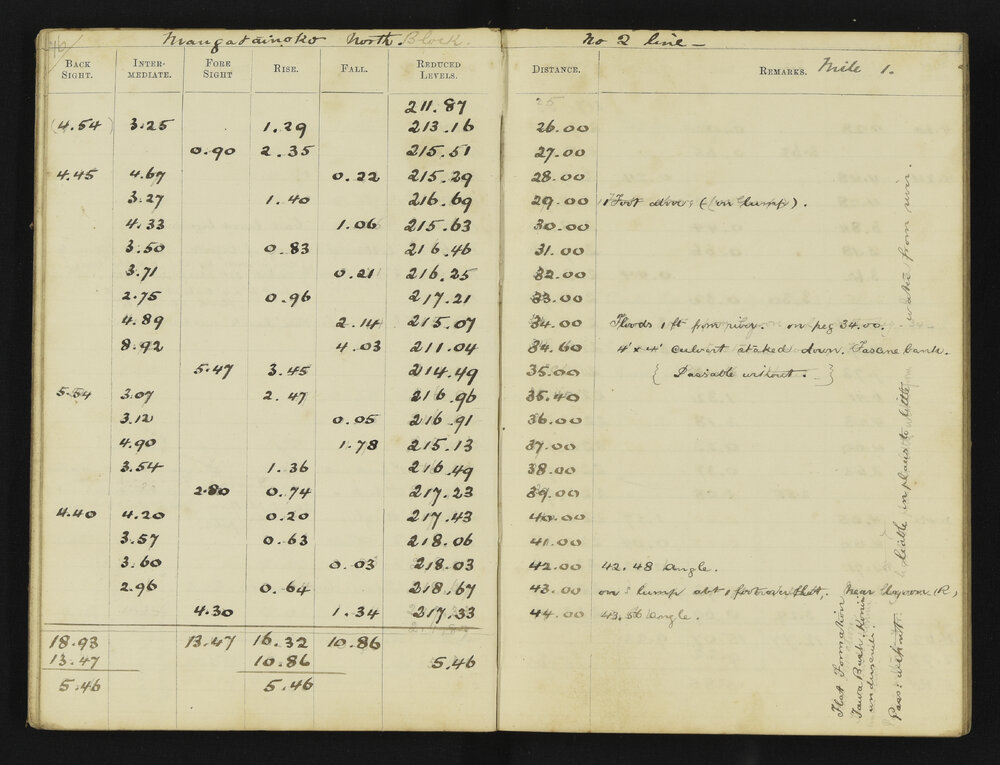 46
Mangatainoko North Block. No 2 line —
BACK SIGHT. INTER-MEDIATE. FORE SIGHT RISE. FALL. REDUCED LEVELS. DISTANCE. REMARKS. Mile 1.
211.87 25
(4.54) 3.25 1.29 213.16 26.00
0.90 2.35 215.51 27.00
4.45 4.67 0.22 215.29 28.00
3.27 1.40 216.69 29.00 1 Foot above (on lump).
4.33 1.06 215.63 30.00
3.50 0.83 216.46 31.00
3.71 0.21 216.25 32.00
2.75 0.96 217.21 33.00
4.89 2.14 215.07 34.00 Floods 1 ft from river. on peg 34.00.
8.92 4.03 211.04 34.60 4' x 4' culvert staked down. Fascine bank.
5.47 3.45 214.49 35.00 { Passable without. — }
5.54 3.07 2.47 216.96 35.40
3.12 0.05 216.91 36.00
4.90 1.78 215.13 37.00
3.54 1.36 216.49 38.00
2.80 0.74 217.23 39.00
4.40 4.20 0.20 217.43 40.00
3.57 0.63 218.06 41.00
3.60 0.03 218.03 42.00 42.48 angle.
2.96 0.64 218.67 43.00 on lump abt 1 foot over that, Near Lagoon (R)
4.30 1.34 217.33 44.00 43.56 angle.
18.93 13.47 16.32 10.86
13.47 10.86 5.46
5.46 5.46
Flat Formation
Tawa Bush
Pass: without
liable in places to little
water from river